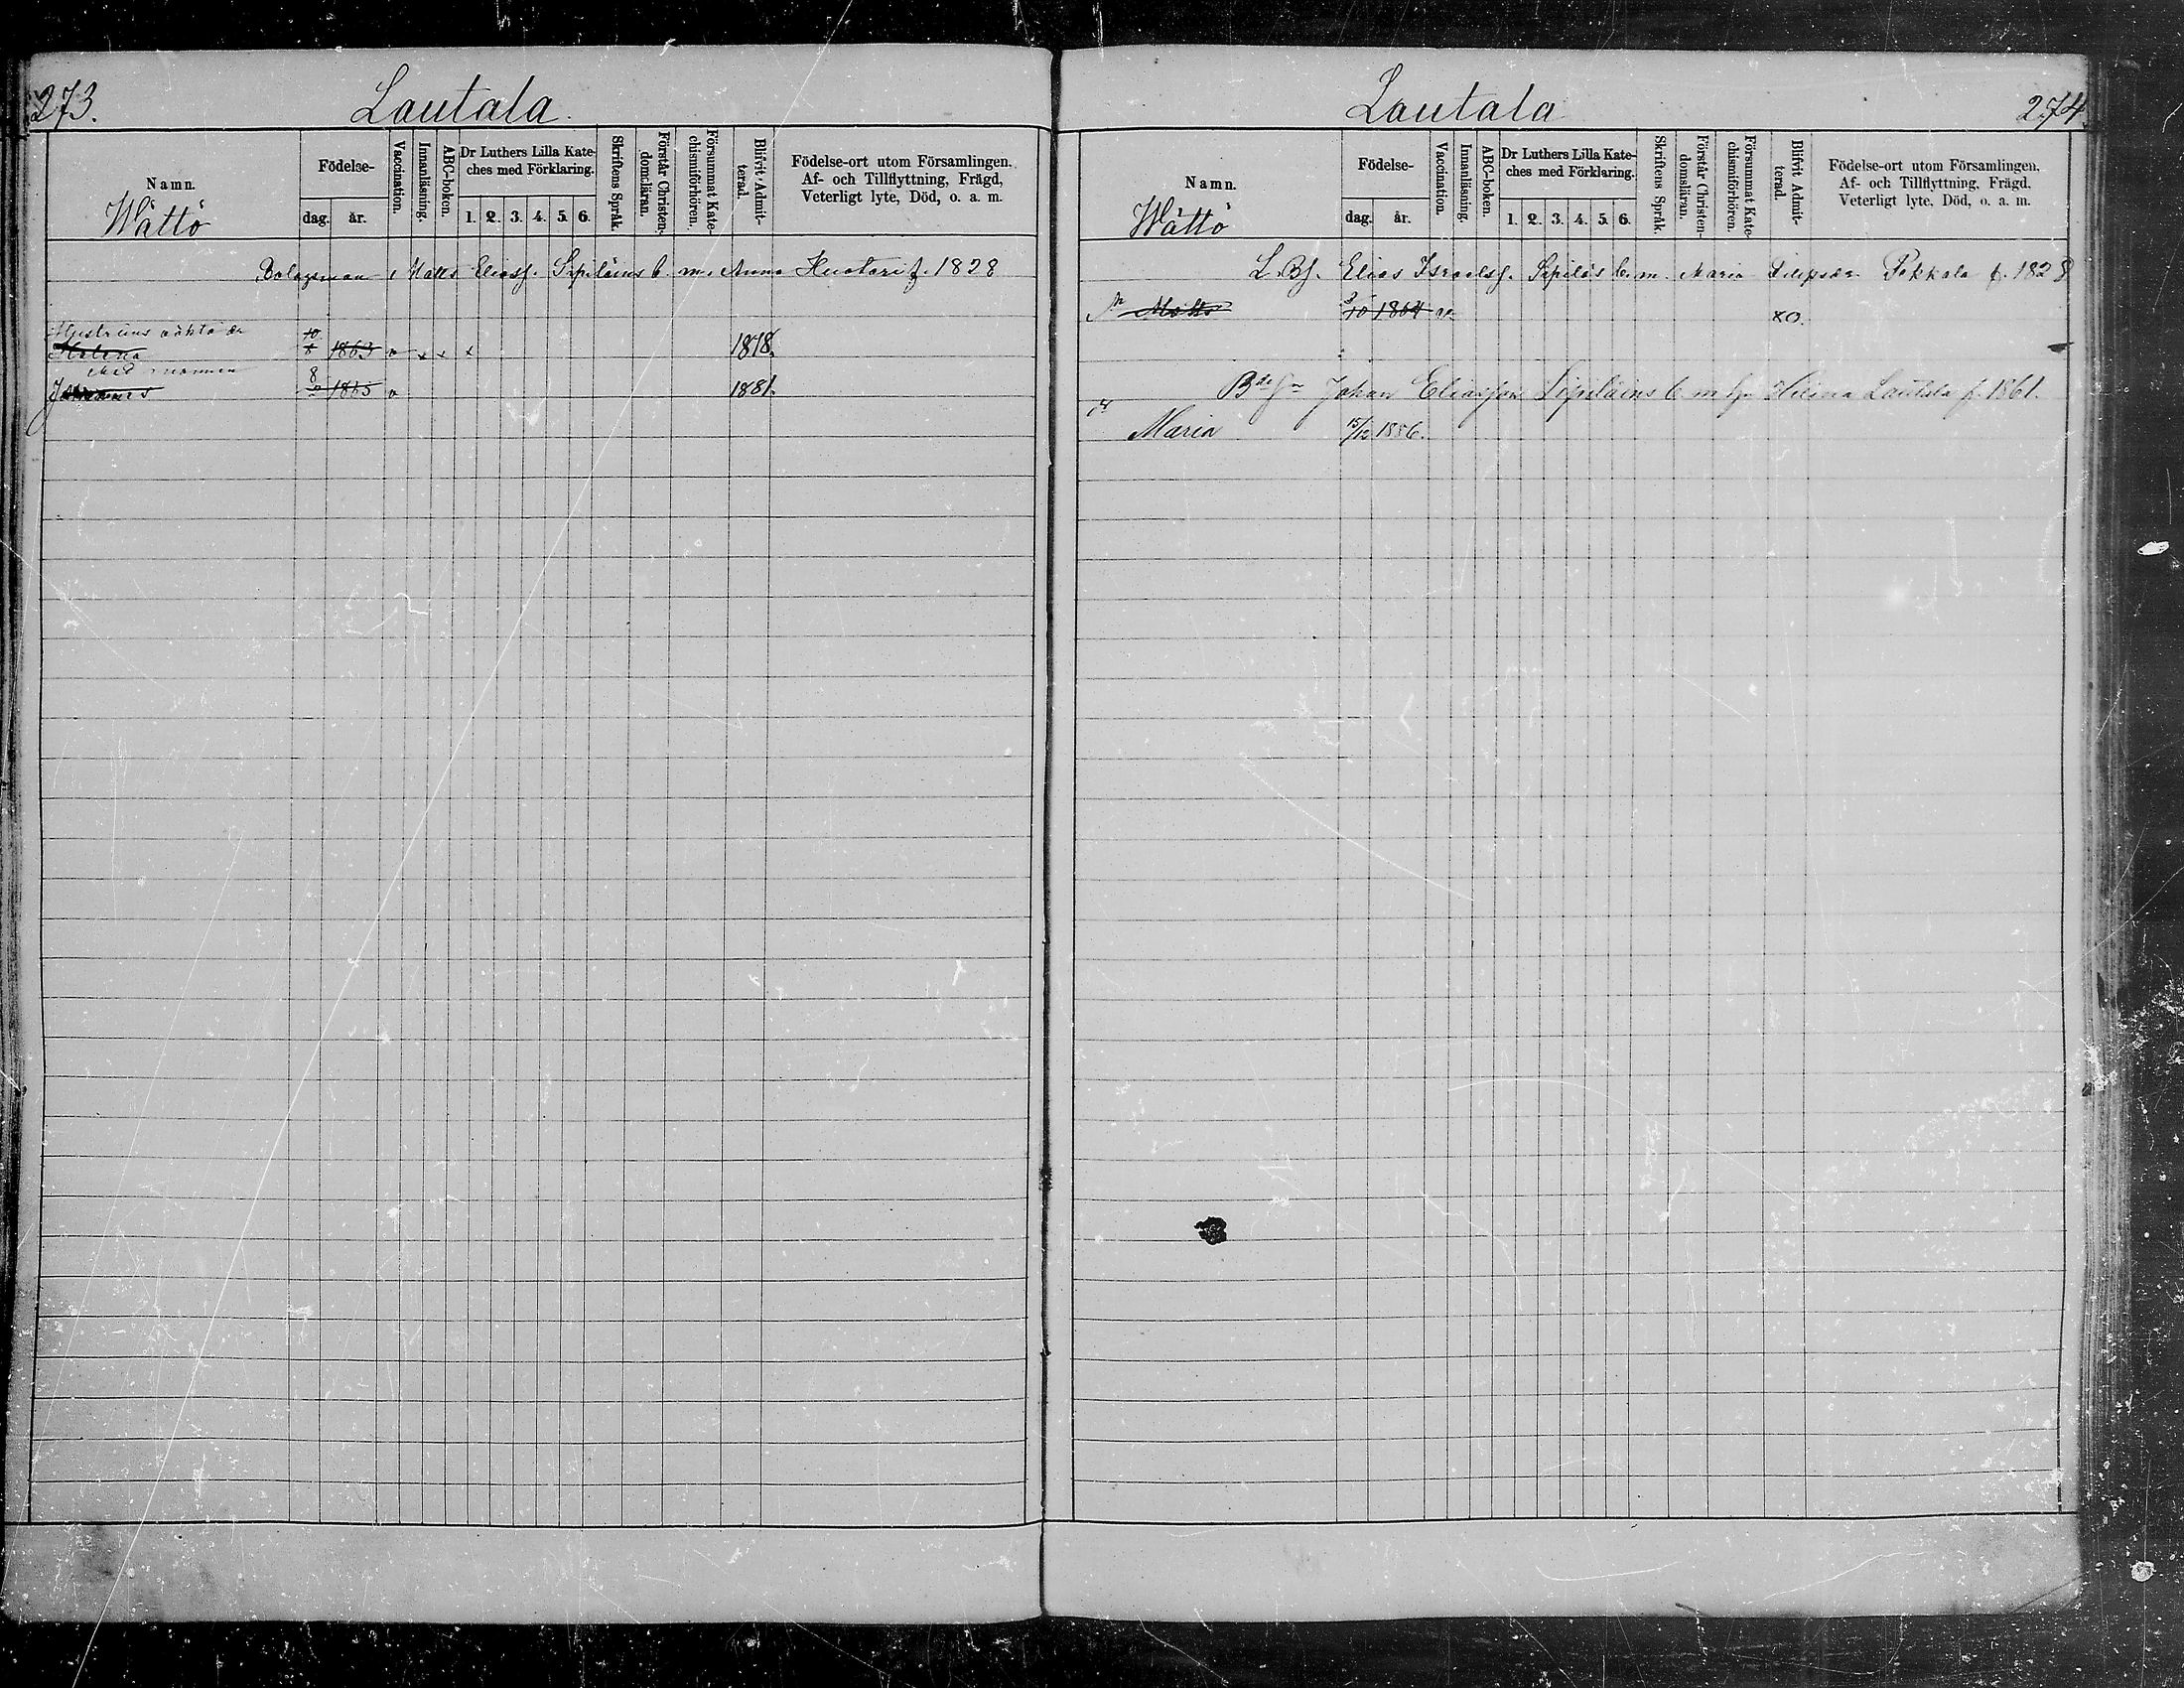 273.
Lautala
Namn.
Wättö
Födelse-
dag.
år.
Vaccination.
Innanläsning.
ABC-boken.
Dr Luthers Lilla Kate-
ches med Förklaring.
1. 2. 3. 4. 5. 6.
Skriftens Språk.
Förstår Christen-
domsläran.
Försummat Kate-
chismiförhören.
Blifvit Admit-
terad.
Födelse-ort utom Församlingen.
Af- och Tillflyttning, Frägd,
Veterligt lyte, Död, o. a. m.
Bolagsman Matts Eliass. Sipiläins b. m. Anna Huotari f. 1828
Helena 10/8 1863 v x x x 1878.
Med mannen
Johannes 8 1865 v 1881.
Lautala
274.
Namn.
Wättö
Födelse-
dag.
år.
Vaccination.
Innanläsning.
ABC-boken.
Dr Luthers Lilla Kate-
ches med Förklaring.
1. 2. 3. 4. 5. 6.
Skriftens Språk.
Förstår Christen-
domsläran.
Försummat Kate-
chismiförhören.
Blifvit Admit-
terad.
Födelse-ort utom Församlingen.
Af- och Tillflyttning, Frägd.
Veterligt lyte, Död, o. a. m.
L. Bf. Elias Israelss. Sipiläs b. m. Maria Filipsdr Pekkala f. 1828
Matts 3/10 1864 v. 80.
Johan Eliasson Sipiläins b. m. h. Helena Lautala f. 1861.
Maria 15/12 1886.